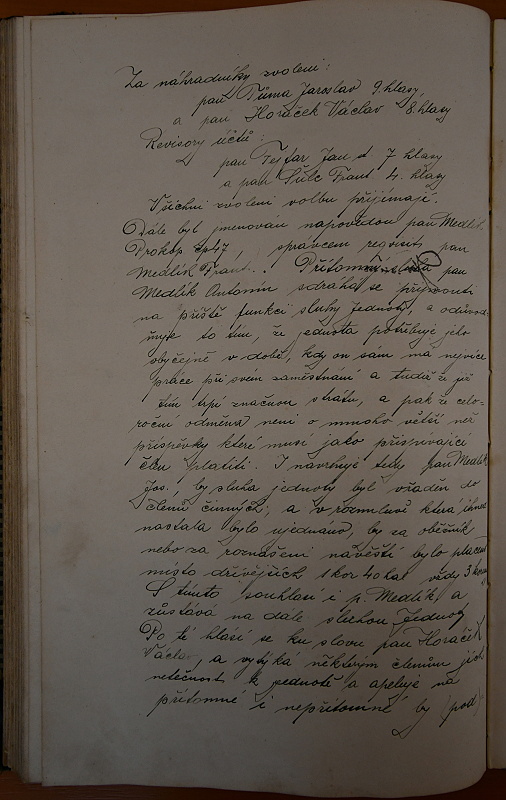 Za náhradníky zvoleni:
pan Tůma Jaroslav 9 hlasy
a pan Horáček Václav 8. hlasy
Revisory účtů:
pan Tejfar Jan st 7 hlasy
a pan Šulc Frant 4. hlasy
Všichni zvoleni volbu přijímají.
Dále byl jmenován napovědou pan Medlík
Prokop čp 47, správcem regvisit pan
Medlík Frant.. Přítomný pan
Medlík Antonín zdráhá se přijmouti
na příště funkci sluhy Jednoty, a odůvod-
ňuje to tím, že jednota potřebuje jeho
obyčejně v době, kdy on sám má nejvíce
práce při svém zaměstnání a tudíž že již
tím trpí značnou ztrátu, a pak že celo-
roční odměna není o mnoho větší než
příspěvky které musí jako přispívající
člen platiti. I navrhuje tedy pan Medlík
Jos., by sluha jednoty byl vřaděn do
členů činných, a v rozmluvě která ihned
nastala bylo ujednáno, by za oběžník
nebo za roznášení návěstí bylo placeno
místo dřívějších 1 kor 40 hal vždy 3 kor
S tímto souhlasí i p. Medlík a
zůstává na dále sluhou Jednoty
Po té hlásí se ku slovu pan Horáček
Václav, a vytýká některým členům jich
netečnost k jednotě a apeluje na
přítomné i nepřítomné by (pod)